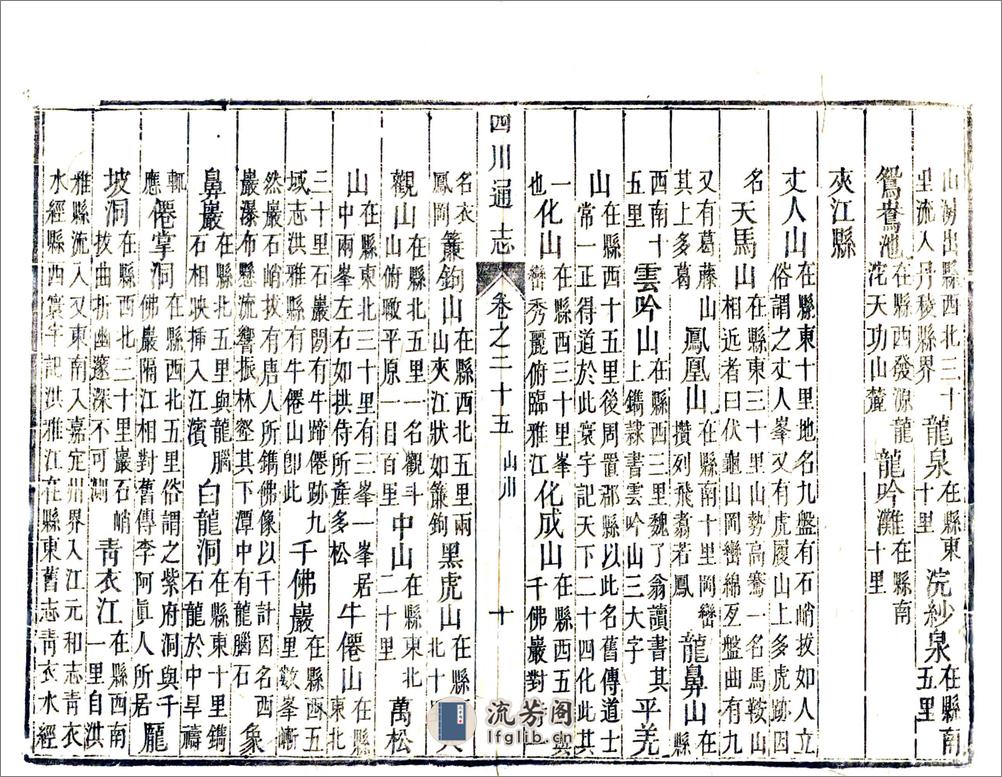 山湖出縣西北三十里流入丹稜縣界 龍泉在縣東十里 浣紗泉在縣南五里
鴛鴦池在縣西發源龍洝天功山麓 龍吟灘在縣南十里
夾江縣
丈人山在縣東十里地名九盤有石峭拔如人立俗謂之丈人峯又有虎履山上多虎跡因
名天馬山在縣東三十里山勢高騫一名馬鞍山相近者曰伏龜山岡巒綿亙盤曲有九
又有葛藤山其上多葛 鳳凰山在縣南十里岡巒攢列飛翥若鳳 龍鼻山在縣
西南十五里 雲吟山在縣西三里魏了翁讀書其上鐫隸書雲吟山三大字 平羌
山在縣西十五里後周置郡縣以此名舊傳道士常一正得道於此寰宇記天下二十四化此其
一也 化山在縣西三十里峯巒秀麗俯臨雅江 化成山在縣西五里與千佛巖對一
四川通志 卷之二十五 山川 十
名衣鳳岡 簾鉤山在縣西北五里兩山夾江狀如簾鉤 黑虎山在縣北十
觀山在縣北五里一名觀斗山俯瞰平原一目百里 中山在縣東北二十里 萬松
山在縣東北三十里有三峯一峯居中兩峯左右如拱侍所產多松 牛僊山在縣東北
三十里石巖閟有牛蹄僊跡九域志洪雅縣有牛僊山卽此 千佛巖在縣西五里數峯嶄
然巖石峭拔有唐人所鐫佛像以千計因名西巖瀑布懸流響振林壑其下潭中有龍腦石 象
鼻巖在縣北五里與龍腦石相映揷入江濱 白龍洞在縣東十里鐫石龍於中旱禱
輒應 僊掌洞在縣西北五里俗謂之紫府洞與千佛巖隔江相對舊傳李阿眞人所居 龎
坡洞在縣西北三十里巖石峭拔曲折幽邃深不可測 靑衣江在縣西南一里自洪
雅縣流入又東南入嘉定州界入江元和志靑衣水經縣西寰宇記洪雅江在縣東舊志靑衣水經
流芳阁
lfglib.cn